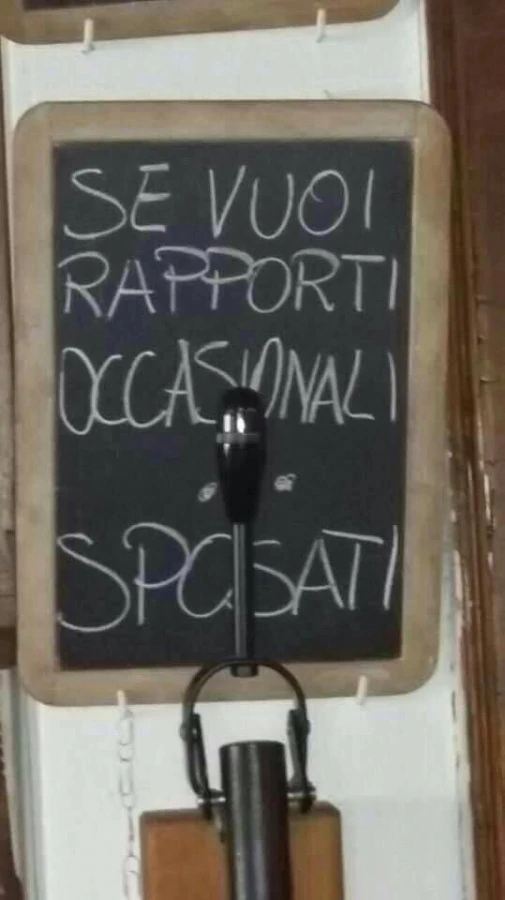 SE VUOI
RAPPORTI
OCCASIONALI
SPOSATI